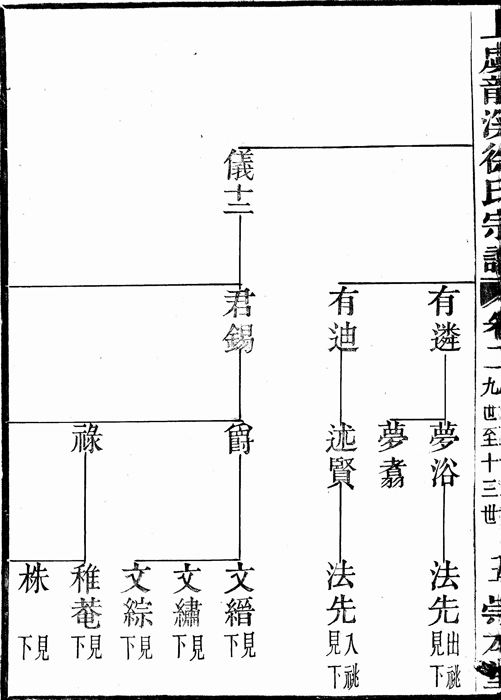 上虞龍溪徐氏宗譜 卷二 九世至十三世 五 崇本
儀十三
有遴
有迪
君錫
夢浴
夢翥
述賢
爵
祿
法先 出祧見下
法先 入祧見下
文縉 見下
文繡 見下
文綜 見下
稚菴 見下
株 見下